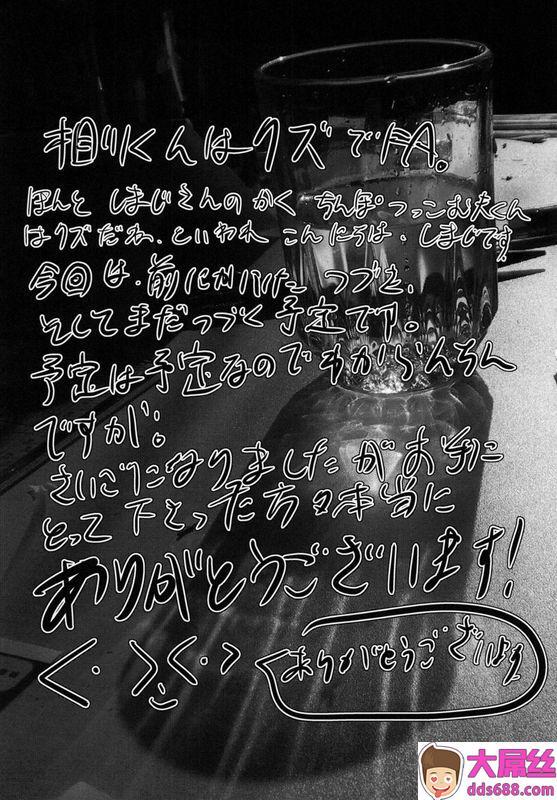 相川くんはクズでFA。
ほんと しまじさんの かく ちんぽつっこむ夫くん
はクズだね、といわれ こんにちは、しまじです!
今回は、前にかいた つづき、
そしてまだつづく予定です。
予定は予定なのでわからんちん
ですが。
さいごになりましたがお手に
とって下さった方々本当に
ありがとうございます!
ありがとうございます
大屌丝
dds688.com